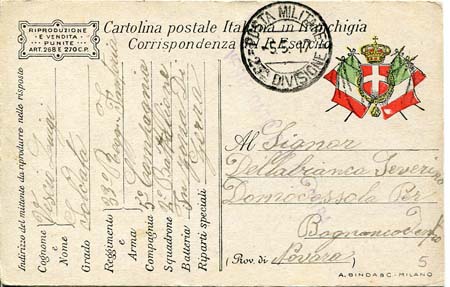 RIPRODUZIONE
E VENDITA
PUNITE
ART. 268 E 270 C.P.
Cartolina postale Italiana in franchigia
Corrispondenza del R. Esercito
POSTA MILITARE
5.5.17
23ª DIVISIONE
Indirizzo del mittente da riprodurre nelle risposte
Cognome e Nome Luigi
Grado Soldato
Reggimento e Arma 33° Regg. Fanteria
Compagnia 5ª Compagnia
Squadrone Battaglione
Batteria
Riparti speciali
Al Signor
Dellabianca Severino
Domodossola Per
Bognanco
(Prov. di Novara)
5
A. BINDA & C. - MILANO